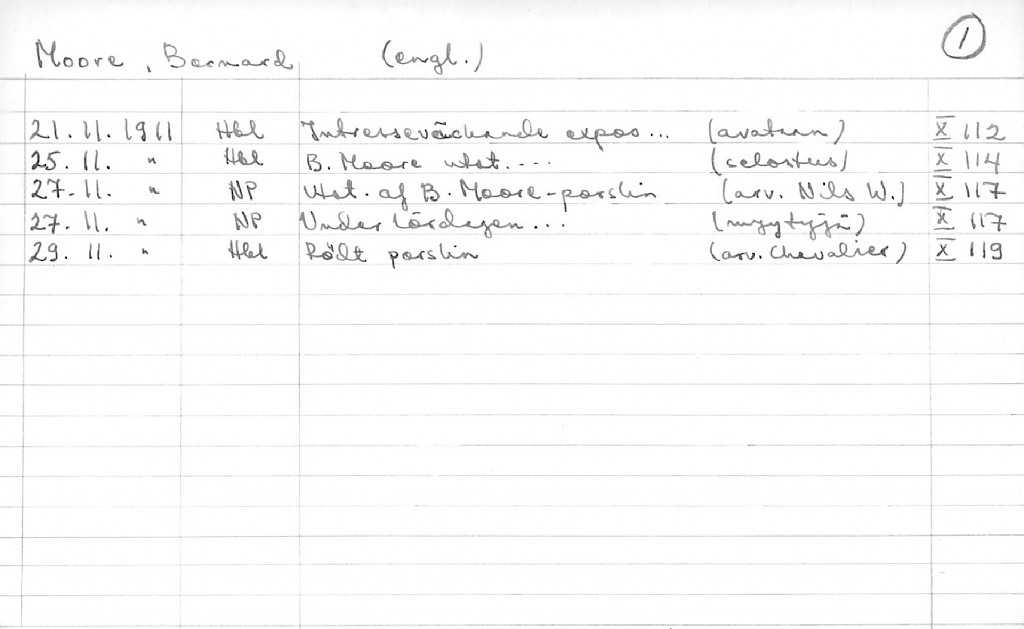 Moore, Bernard (engl.) 1
21.11.1911 Hbl Intresseväckande expos... (avataan) X 112
25.11. " Hbl B. Moore utst.... (selostus) X 114
27.11. " NP Utst. af B. Moore-porslin (arv. Nils W.) X 117
27.11. " NP Under lördagen... (myytyjä) X 117
29.11. " Hbl Rödt porslin (arv. Chevalier) X 119